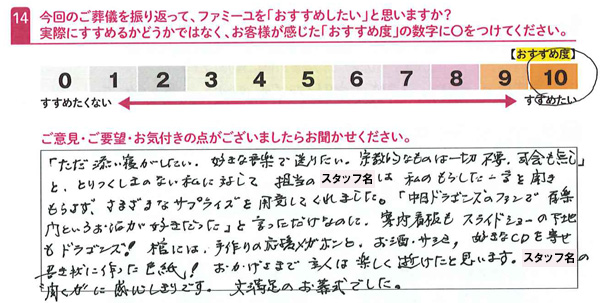 14 今回のご葬儀を振り返って、ファミーユを「おすすめしたい」と思いますか？
実際にすすめるかどうかではなく、お客様が感じた「おすすめ度」の数字に○をつけてください。
【おすすめ度】
0 1 2 3 4 5 6 7 8 9 10
すすめたくない すすめたい
ご意見・ご要望・お気付きの点がございましたらお聞かせください。
「ただ添い寝がしたい。好きな音楽で送りたい。宗教的なものは一切不要。司会も無し」
と、とりつくしまのない私に対して 担当のスタッフ名は 私のもらした一言を聞き
もらさず、さまざまなサプライズを用意してくれました。「中日ドラゴンズのファンで
というお酒が好きだった」と言っただけなのに、案内看板も スライドショーの下地
もドラゴンズ！ 棺には、手作りの応援メガホンと、お酒・サシミ、好きなCDを寄せ
書き状に作った色紙」！ おかげさまで 主人は楽しく逝けたと思います。スタッフ名の
心くばりに 感心しきりです。大満足のお葬式でした。